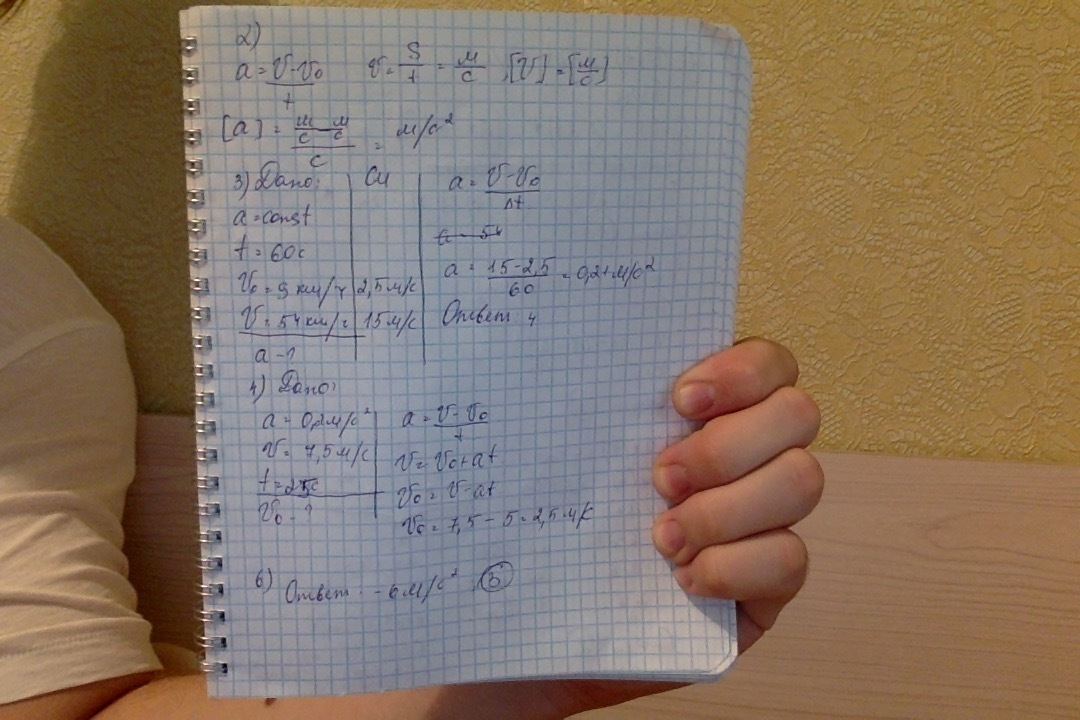 2)
a = V-V₀/t   V = S/t = м/с, [V] = [м/с]
[a] = (м/с - м/с)/с = м/с²
3) Дано: Си a = V-V₀/Δt
a = const
t = 60с
a = 15-2,5/60 = 0,21м/с²
V₀ = 9 км/ч 2,5 м/с
V = 54 км/ч 15 м/с Ответ 4
a - ?
4) Дано:
a = 0,2м/с² a = V-V₀/t
V = 7,5 м/с V = V₀+at
t = 25с V₀ = V-at
V₀ - ? V₀ = 7,5 - 5 = 2,5 м/с
6) Ответ: -6м/с²